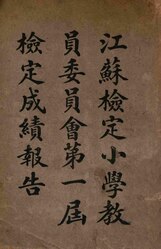 江蘇檢定小學教
員委員會第一屆
檢定成績報告